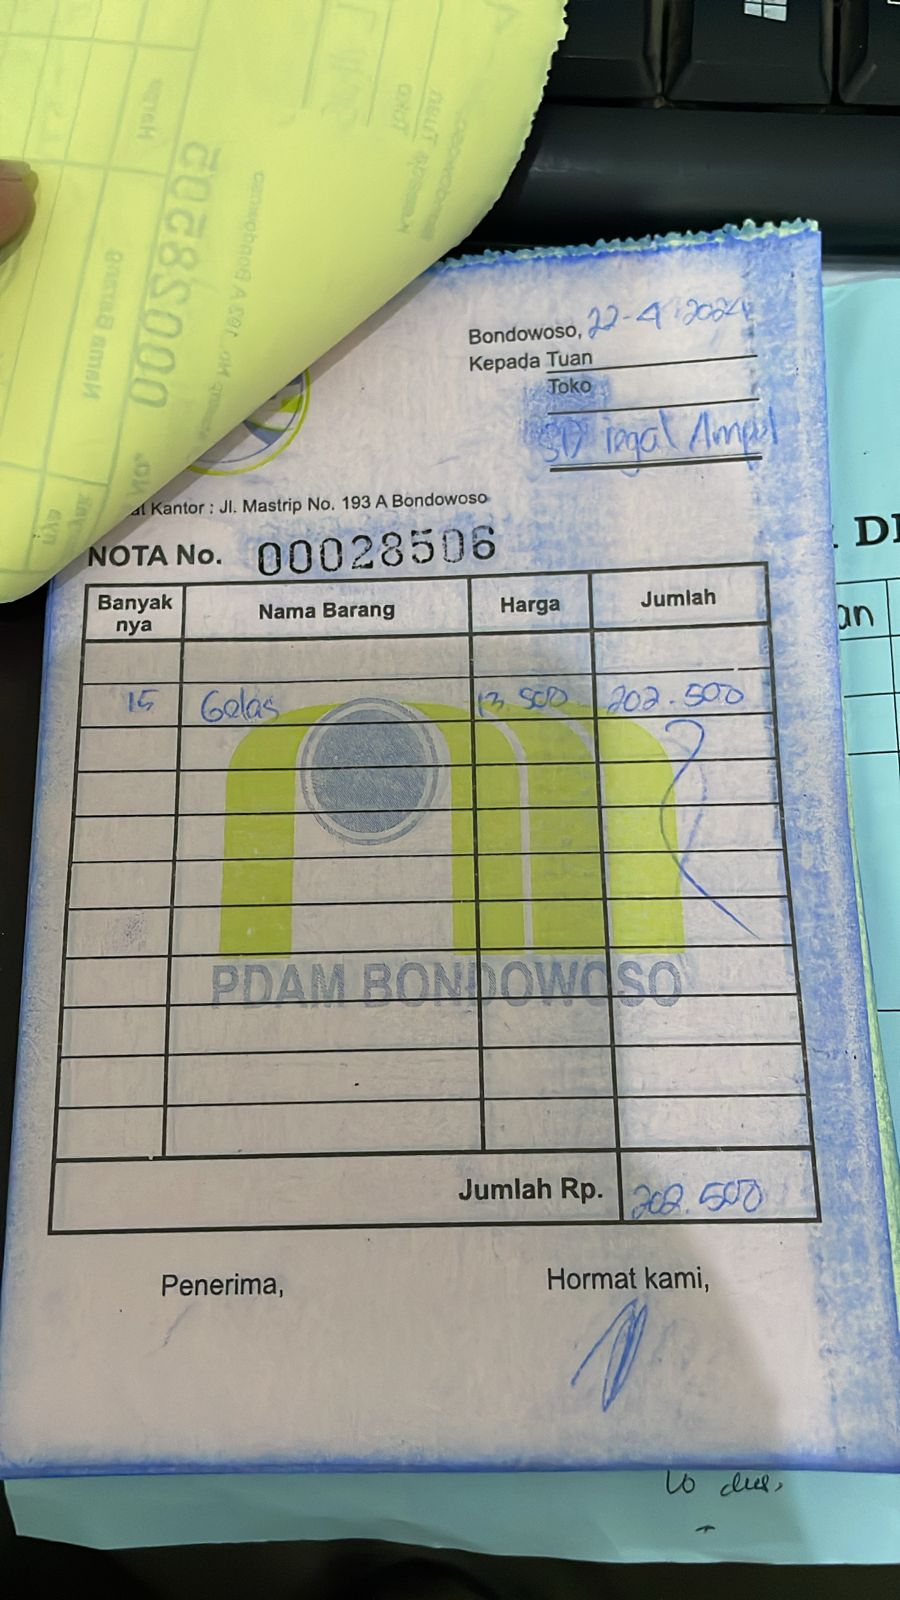 Bondowoso, 22-4-2024
Kepada Tuan
Toko
SD Tegal Ampel
Kantor : Jl. Mastrip No. 193 A Bondowoso
NOTA No. 00028506
Banyak nya Nama Barang Harga Jumlah
15 Gelas 13.500 202.500
PDAM BONDOWOSO
Jumlah Rp. 202.500
Penerima, Hormat kami,
00028505
Nama Barang
10 dus,